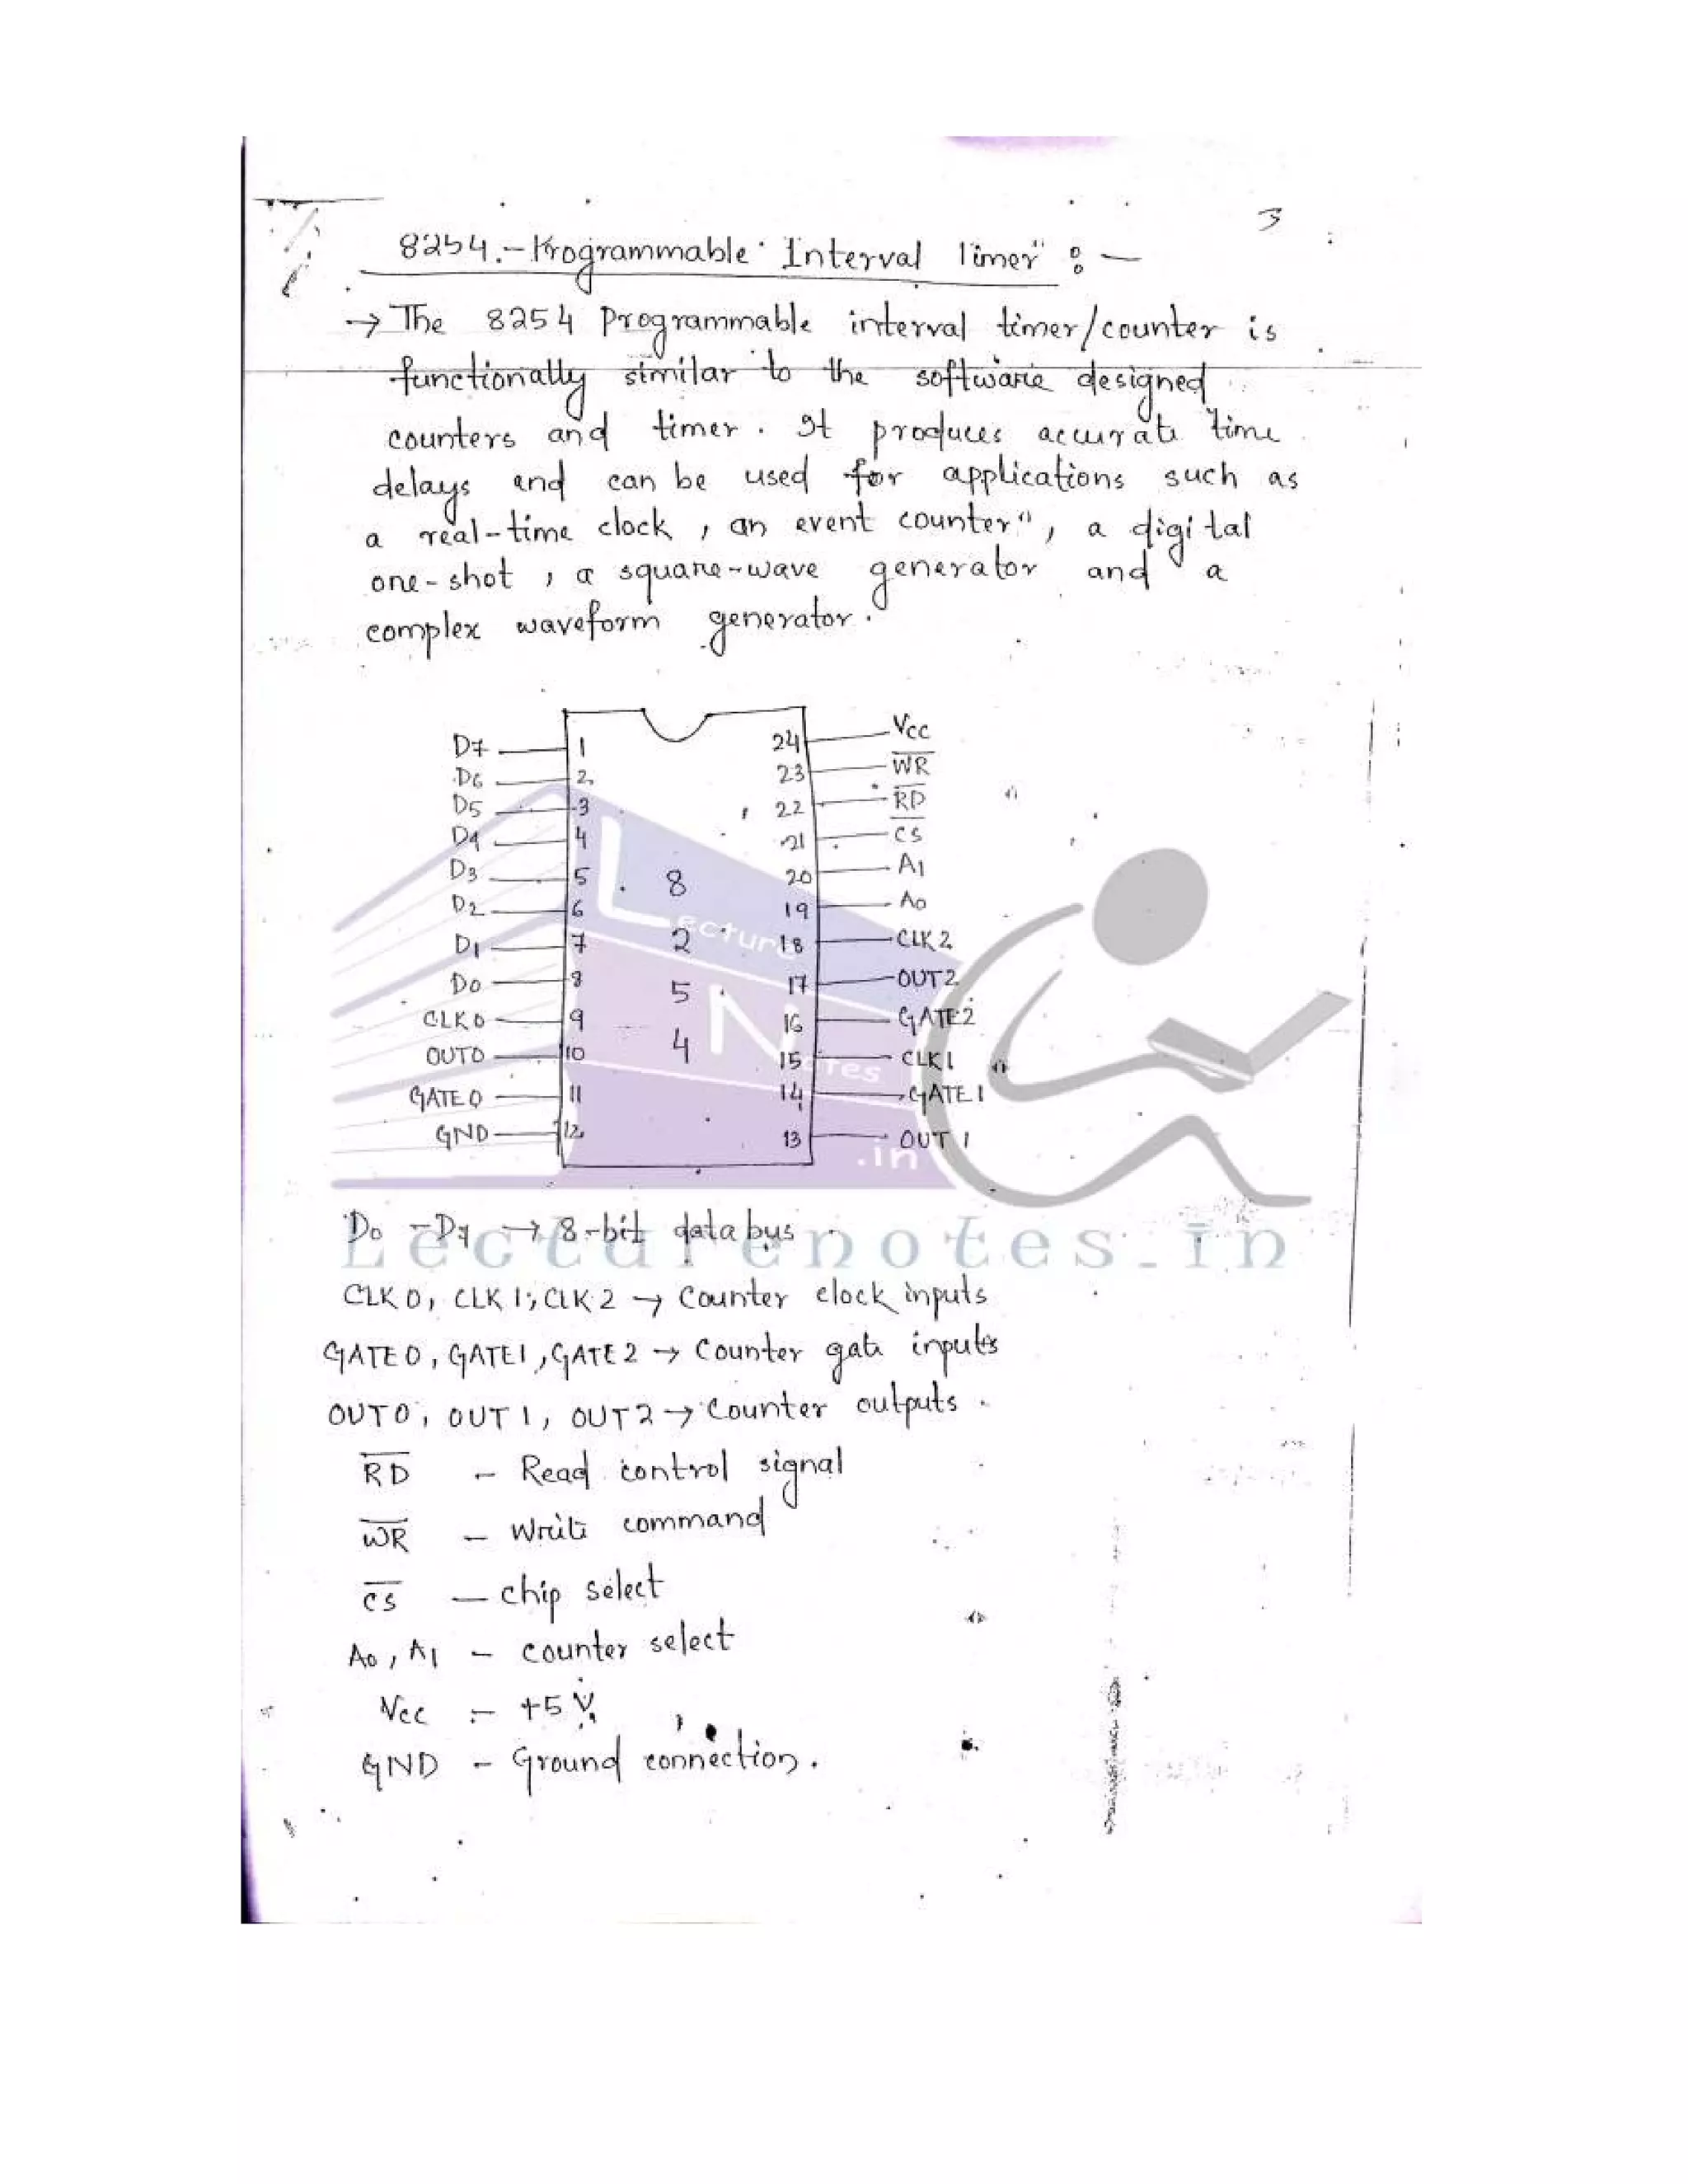 3
8254.- Programmable Interval Timer" :-
→ The 8254 Programmable interval timer/counter is
functionally similar to the software designed
counters and timer. It produces accurate time
delays and can be used for applications such as
a real-time clock, an event counter", a digital
one-shot, a square-wave generator and a
complex waveform generator.
D7 1 24 Vcc
D6 2 23 W̅R̅
D5 3 22 R̅D̅
D4 4 21 C̅S̅
D3 5 8 20 A1
D2 6 19 A0
D1 7 2 18 CLK2
D0 8 5 17 OUT2
CLK0 9 16 GATE2
OUT0 10 4 15 CLK1
GATE0 11 14 GATE1
GND 12 13 OUT 1
Lecture
Notes
.in
D0 - D7 → 8-bit data bus
Lecturenotes.in
CLK0, CLK1, CLK2 → Counter clock inputs
GATE0, GATE1, GATE2 → Counter gate inputs
OUT0, OUT1, OUT2 → Counter outputs.
R̅D̅ - Read control signal
W̅R̅ - Write command
C̅S̅ - chip select
A0, A1 - counter select
Vcc - +5V
GND - Ground connection.